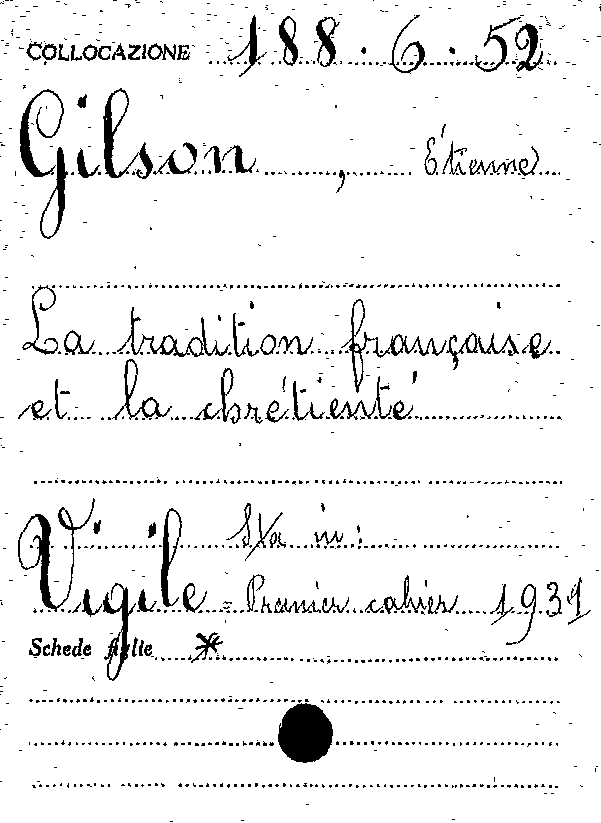 COLLOCAZIONE 188.6.52
Gilson, Étienne
La tradition française
et la chrétienté
Sta in:
Vigile - Premier cahier 1931
Schede figlie *